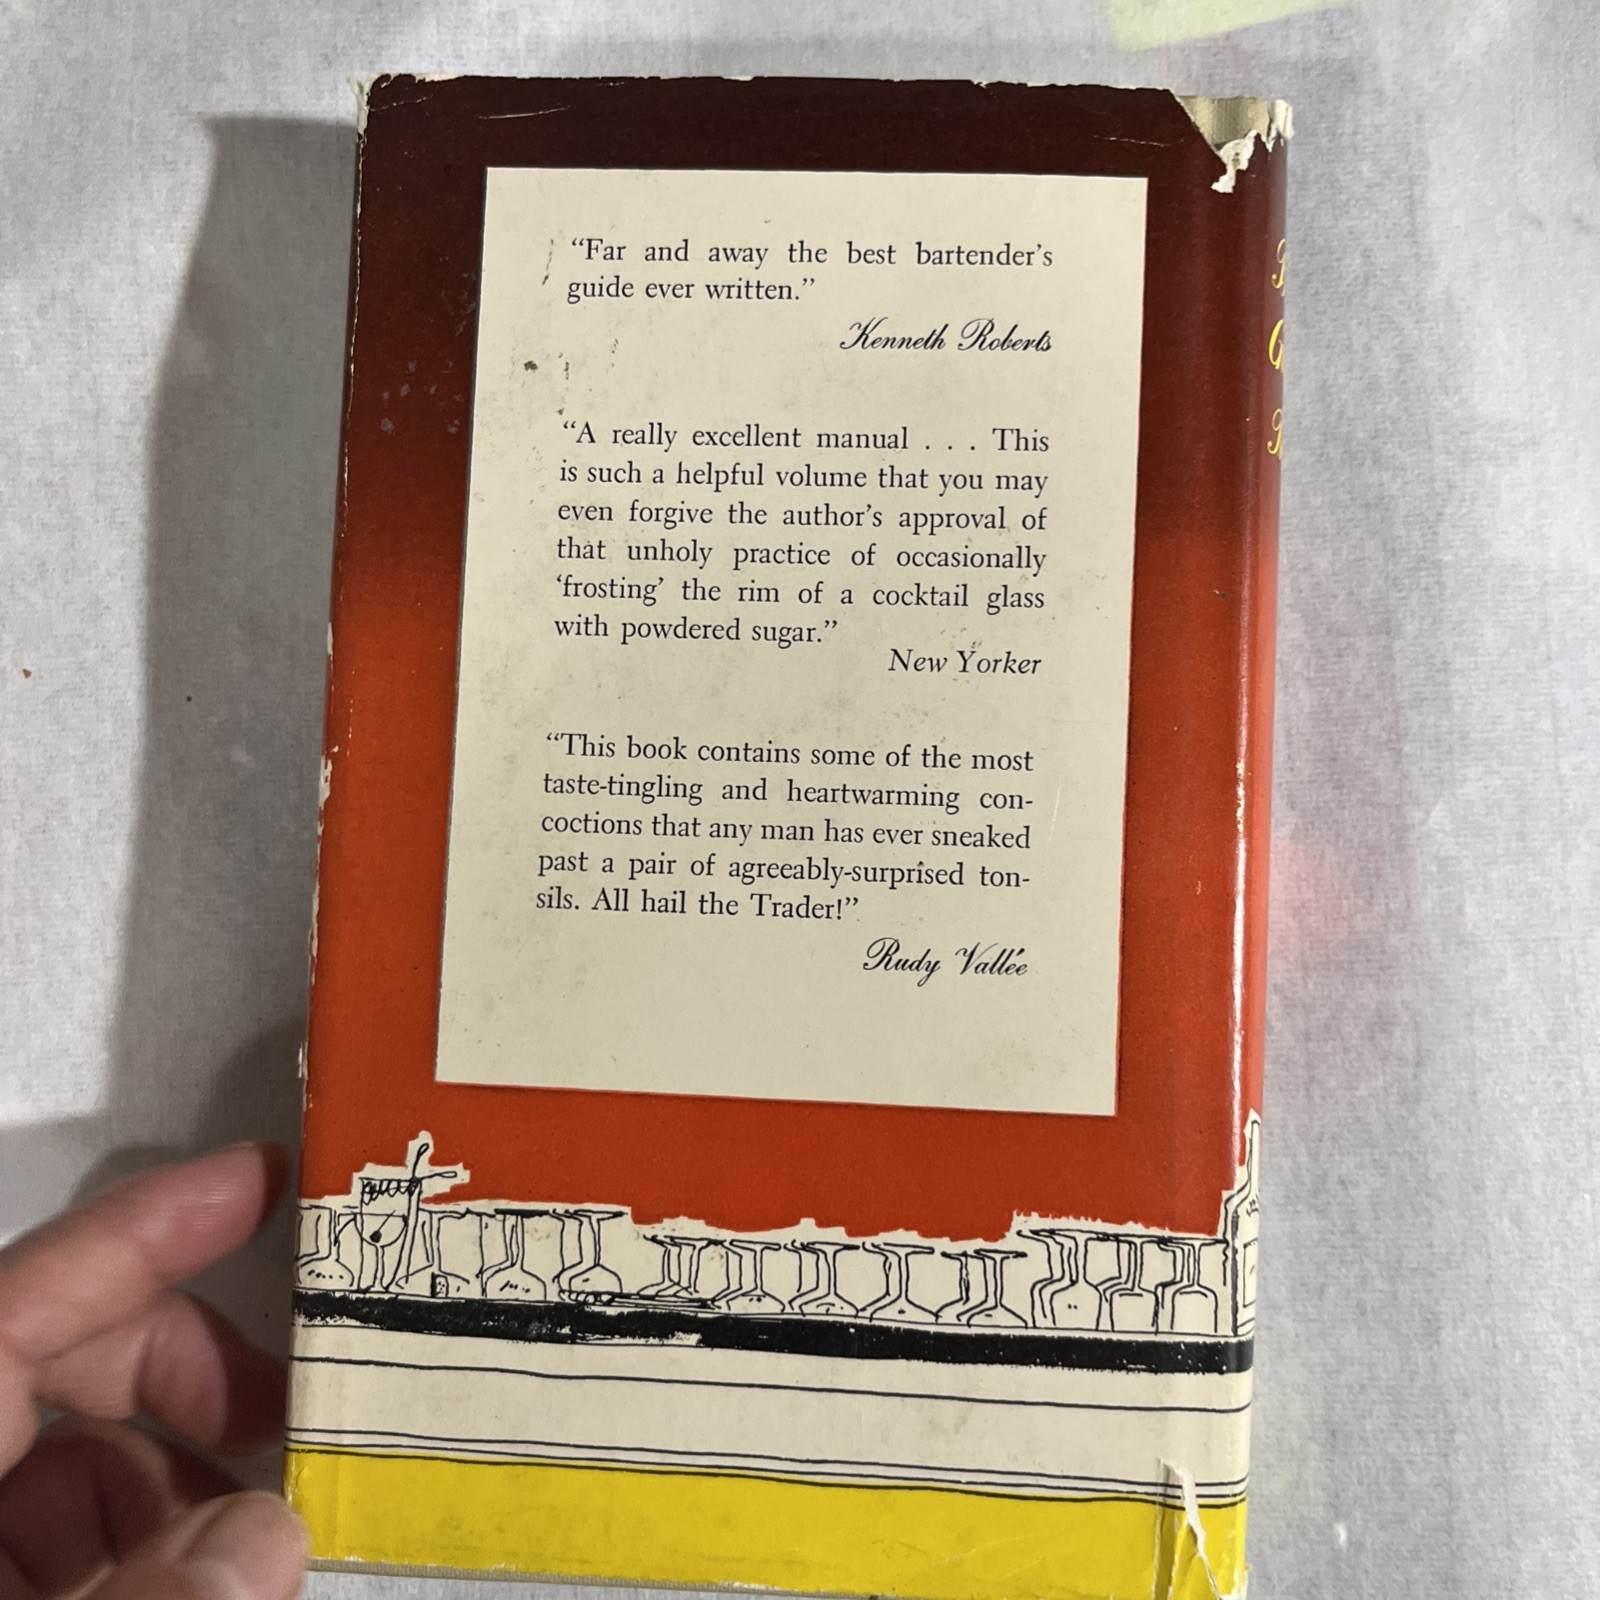 “Far and away the best bartender’s
guide ever written.”
Kenneth Roberts
“A really excellent manual . . . This
is such a helpful volume that you may
even forgive the author’s approval of
that unholy practice of occasionally
‘frosting’ the rim of a cocktail glass
with powdered sugar.”
New Yorker
“This book contains some of the most
taste-tingling and heartwarming con-
coctions that any man has ever sneaked
past a pair of agreeably-surprised ton-
sils. All hail the Trader!”
Rudy Vallée